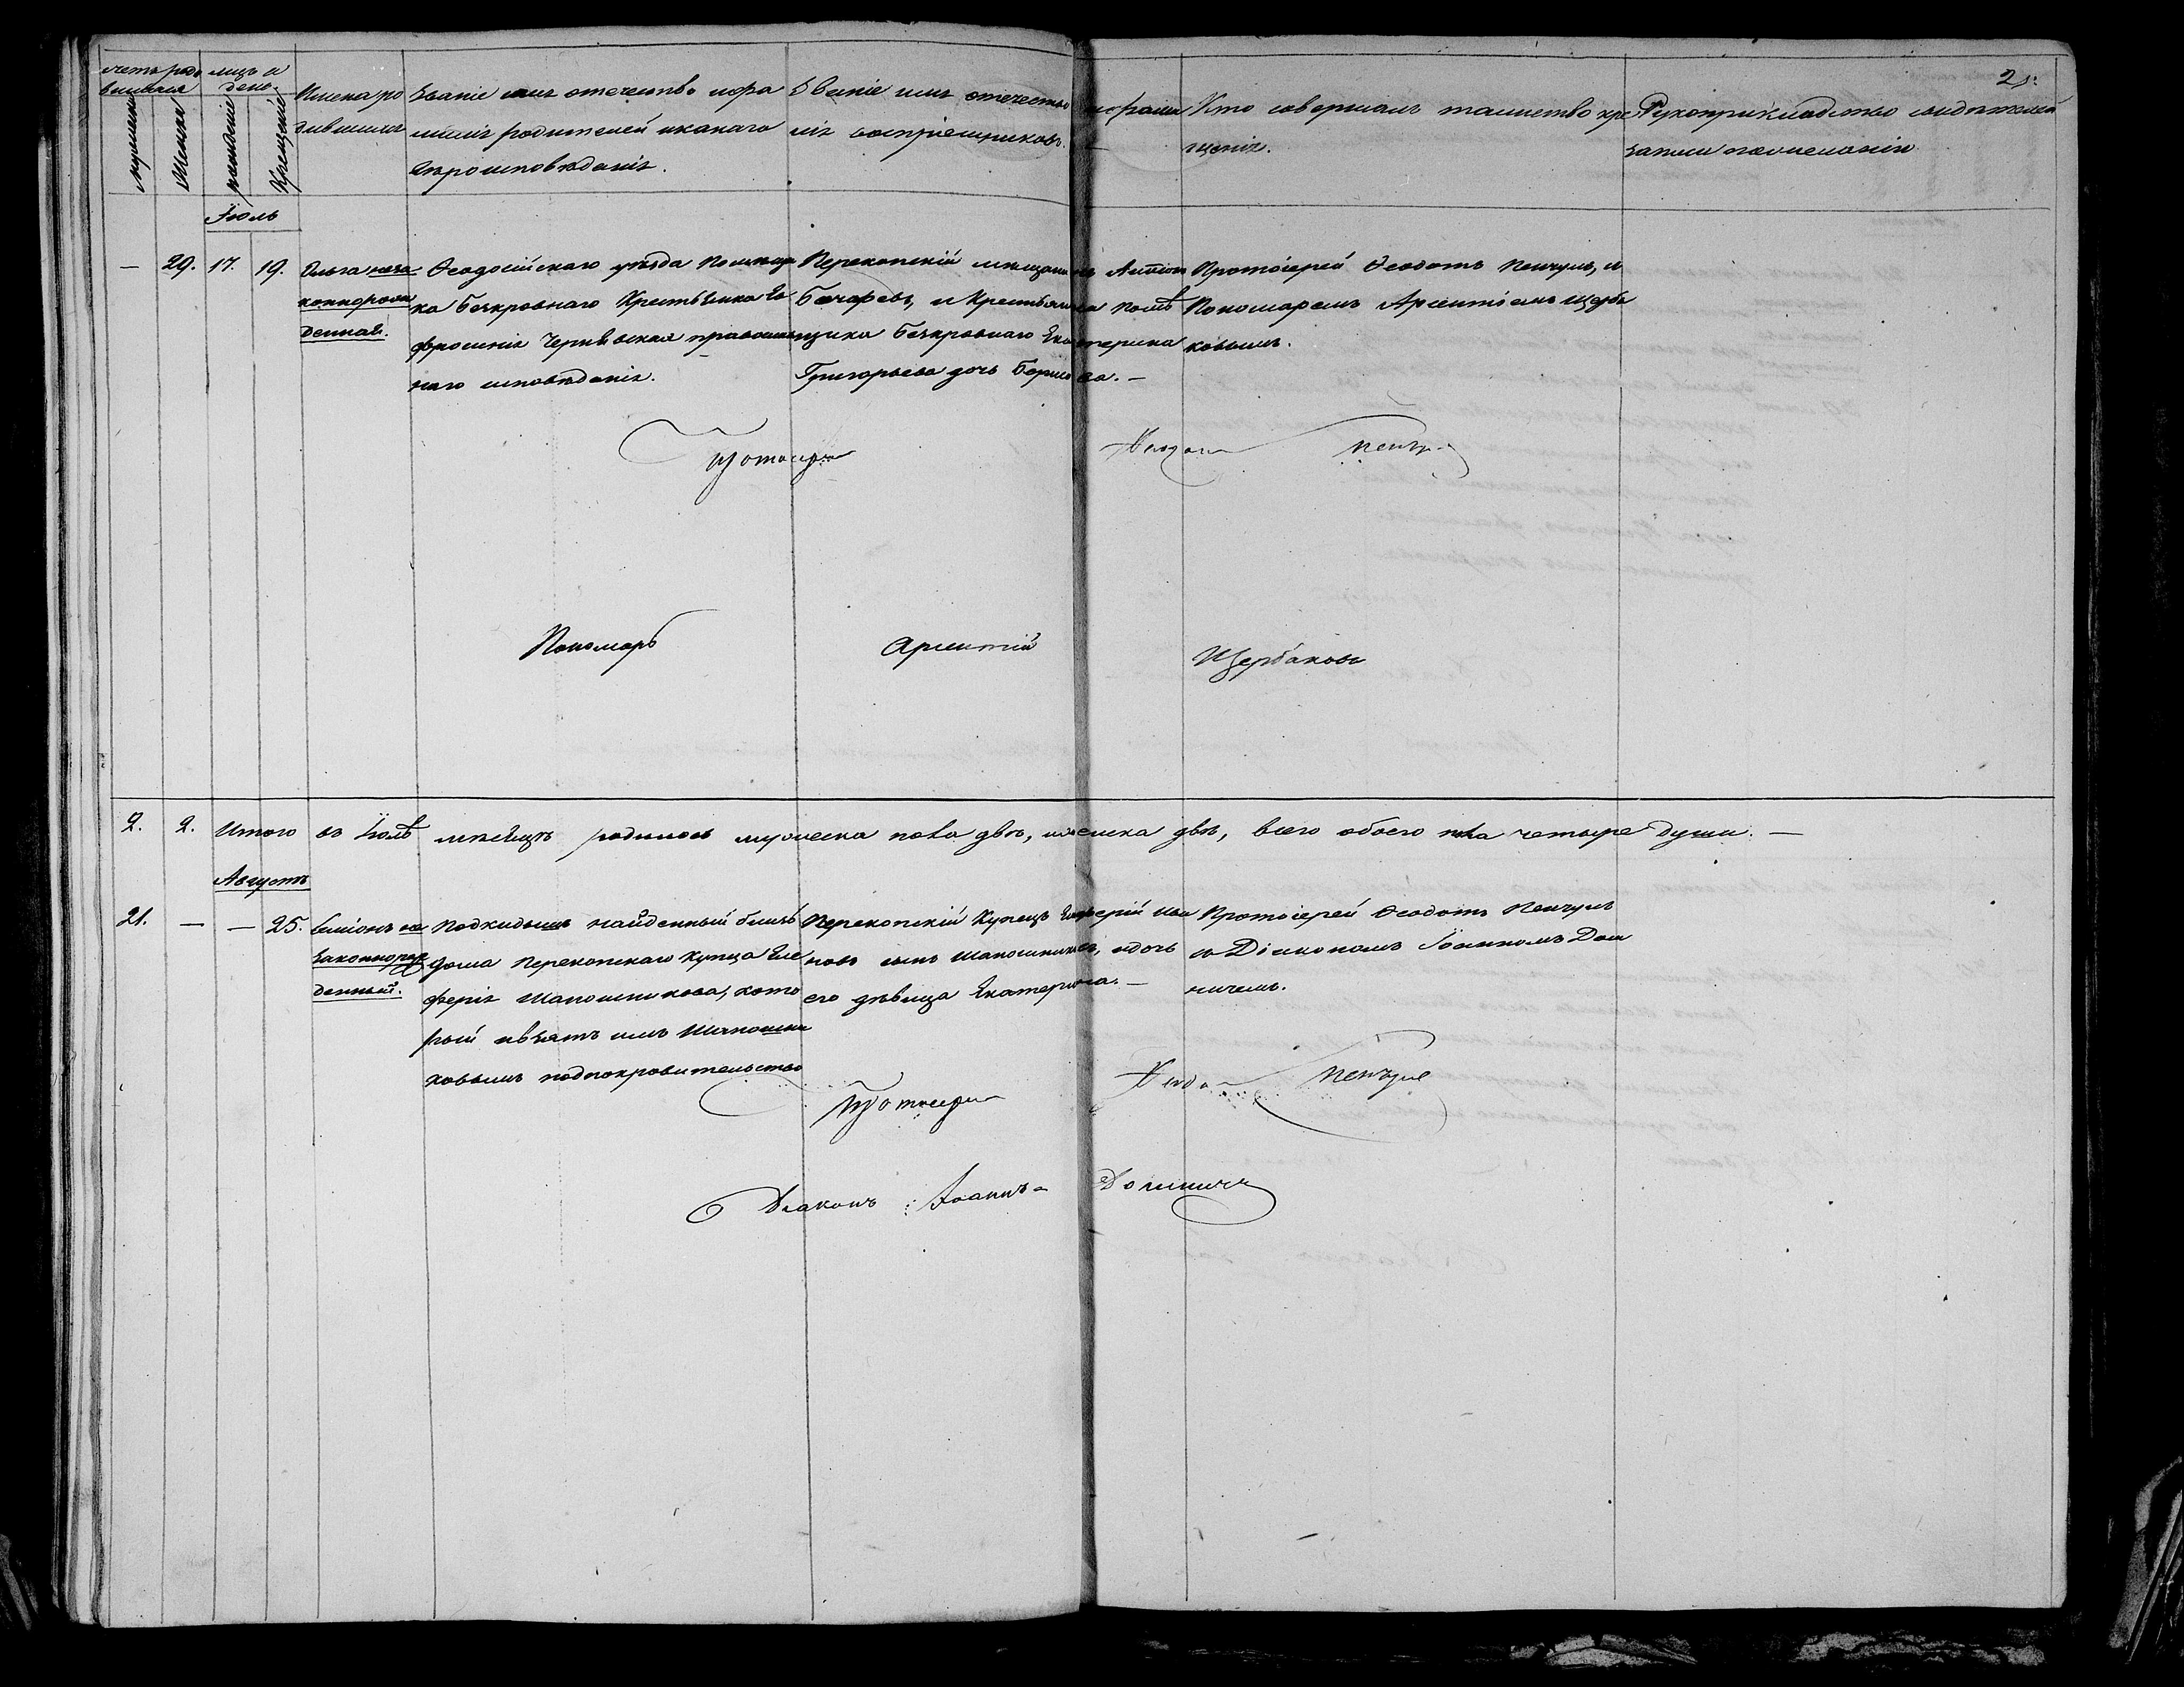 21.
Счетъ родившихся
Мужеска
Женска
Мѣсяцъ и день
рожденіе
Крещеніе
Имена родившихъ
Званіе имя отечество и фамилія родителей и какаго вѣроисповѣданія.
Званіе имя отечество и фамилія воспріемниковъ.
Кто совершалъ таинство крещенія.
Рукоприкладство свидѣтелей записи по желанію
Іюль
— 29. 17. 19.
Ольга незаконнорожденная.
Ѳеодосійскаго уѣзда Помѣщика Безкровнаго Крестьянка Евфросинія
наго исповѣданія.
Перекопскій мѣщанинъ Антонъ
и Крестьянка помѣщика Безкровнаго Екатерина
Григорьева дочь
Протоіерей Ѳеодотъ Пенчулъ, и
Пономаремъ Арсентіемъ Щербаковымъ.
Протоіерей Ѳеодотъ Пенчулъ
Пономарь Арсентій Щербаковъ
2. 2. Итого въ Іюлѣ мѣсяцѣ родилось мужеска пола двѣ, женска двѣ, всего обоего пола четыре души. —
Августъ
21. — — 25.
Симіонъ незаконнорожденный.
Подкидышъ найденный близъ
дома Перекопскаго купца Елеферія Шапошникова, который взятъ имъ Шапошниковымъ подпокровительство
Перекопскій Купецъ Елеферій Ивановъ сынъ Шапошниковъ, и дочь
его дѣвица Екатерина. —
Протоіерей Ѳеодотъ Пенчулъ
съ Діакономъ Іоанномъ Доличемъ.
Протоіерей Ѳеодотъ Пенчулъ
Діаконъ Іоаннъ